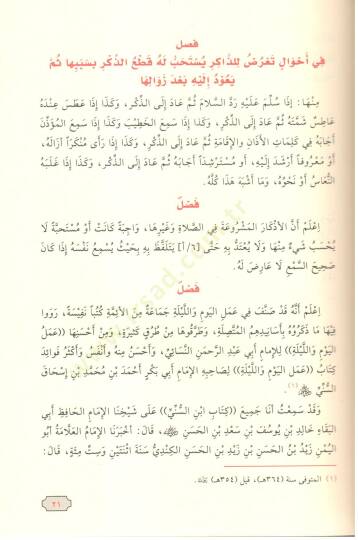 فصل
فِي أَحْوَالٍ تَعْرِضُ لِلذَّاكِرِ يُسْتَحَبُّ لَهُ قَطْعُ الذِّكْرِ بِسَبَبِهَا ثُمَّ
يَعُودُ إِلَيْهِ بَعْدَ زَوَالِهَا
مِنْهَا: إِذَا سُلِّمَ عَلَيْهِ رَدَّ السَّلَامَ ثُمَّ عَادَ إِلَى الذِّكْرِ، وَكَذَا إِذَا عَطَسَ عِنْدَهُ
عَاطِسٌ شَمَّتَهُ ثُمَّ عَادَ إِلَى الذِّكْرِ، وَكَذَا إِذَا سَمِعَ الخَطِيبَ وَكَذَا إِذَا سَمِعَ المُؤَذِّنَ
أَجَابَهُ فِي كَلِمَاتِ الأَذَانِ وَالإِقَامَةِ ثُمَّ عَادَ إِلَى الذِّكْرِ، وَكَذَا إِذَا رَأَى مُنْكَرًا أَزَالَهُ،
أَوْ مَعْرُوفًا أَرْشَدَ إِلَيْهِ، أَو مُسْتَرْشِدًا أَجَابَهُ ثُمَّ عَادَ إِلَى الذِّكْرِ، وَكَذَا إِذَا غَلَبَهُ
النُّعَاسُ أَوْ نَحْوُهُ، وَمَا أَشْبَهَ هَذَا كُلَّهُ.
فصل
اِعْلَمْ أَنَّ الأَذْكَارَ المَشْرُوعَةَ فِي الصَّلَاةِ وَغَيْرِهَا، وَاجِبَةً كَانَتْ أَوْ مُسْتَحَبَّةً لَا
يُحْسَبُ شَيْءٌ مِنْهَا وَلَا يُعْتَدُّ بِهِ حَتَّى [٦/أ] يَتَلَفَّظَ بِهِ بِحَيْثُ يُسْمِعُ نَفْسَهُ إِذَا كَانَ
صَحِيحَ السَّمْعِ لَا عَارِضَ لَهُ.
فصل
اِعْلَمْ أَنَّهُ قَدْ صَنَّفَ فِي عَمَلِ اليَوْمِ وَاللَّيْلَةِ جَمَاعَةٌ مِنَ الأَئِمَّةِ كُتُبًا نَفِيسَةً، رَوَوْا
فِيهَا مَا ذَكَرُوهُ بِأَسَانِيدِهِمُ المُتَّصِلَةِ، وَطَرَّقُوهَا مِنْ طُرُقٍ كَثِيرَةٍ، وَمِنْ أَحْسَنِهَا ((عَمَلُ
اليَوْمِ وَاللَّيْلَةِ)) لِلإِمَامِ أَبِي عَبْدِ الرَّحْمَنِ النَّسَائِيِّ، وَأَحْسَنُ مِنْهُ وَأَنْفَسُ وَأَكْثَرُ فَوَائِدَ
كِتَابُ ((عَمَلِ اليَوْمِ وَاللَّيْلَةِ)) لِصَاحِبِهِ الإِمَامِ أَبِي بَكْرٍ أَحْمَدَ بْنِ مُحَمَّدِ بْنِ إِسْحَاقَ
السُّنِّيِّ (١).
وَقَدْ سَمِعْتُ أَنَا جَمِيعَ ((كِتَابِ ابْنِ السُّنِّيِّ)) عَلَى شَيْخِنَا الإِمَامِ الحَافِظِ أَبِي
البَقَاءِ خَالِدِ بْنِ يُوسُفَ بْنِ سَعْدِ بْنِ الحَسَنِ، قَالَ: أَخْبَرَنَا الإِمَامُ العَلَّامَةُ أَبُو
اليُمْنِ زَيْدُ بْنُ الحَسَنِ بْنِ زَيْدِ بْنِ الحَسَنِ الكِنْدِيُّ سَنَةَ اثْنَتَيْنِ وَسِتِّ مِئَةٍ، قَالَ:
(١) المتوفى سنة (٣٦٤هـ)، قيل (٣٥٤هـ)
٢١